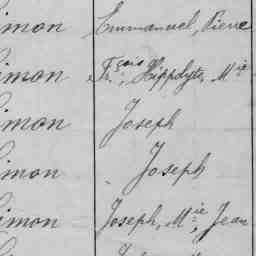 Simon Emmanuel, Pierre
Simon Fçois, Hippolyte, Mie
Simon Joseph
Simon Joseph
Simon Joseph, Mie, Jean